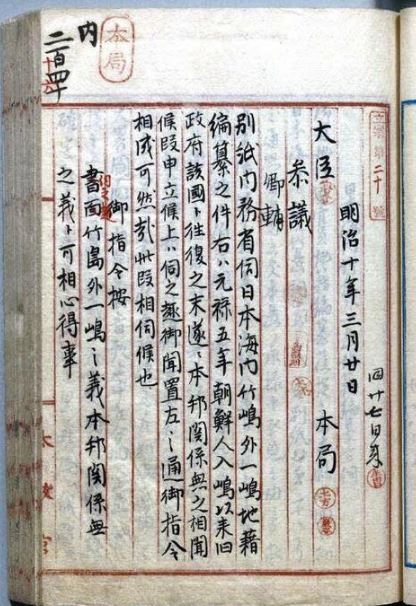 本局
内
二百四十
立案第二十號
明治十年三月廿日
大臣
本局
參議
卿輔
別紙内務省伺日本海内竹嶋外一嶋地籍
編纂之件右ハ元禄五年朝鮮人入嶋以来旧
政府該國ト往復之末遂ニ本邦関係無之相聞
候段申立候上ハ伺之趣御聞置左之通御指令
相成可然哉此段相伺候也
御指令按
伺之趣
書面竹島外一嶋之義本邦関係無
之義ト可相心得事
太政官